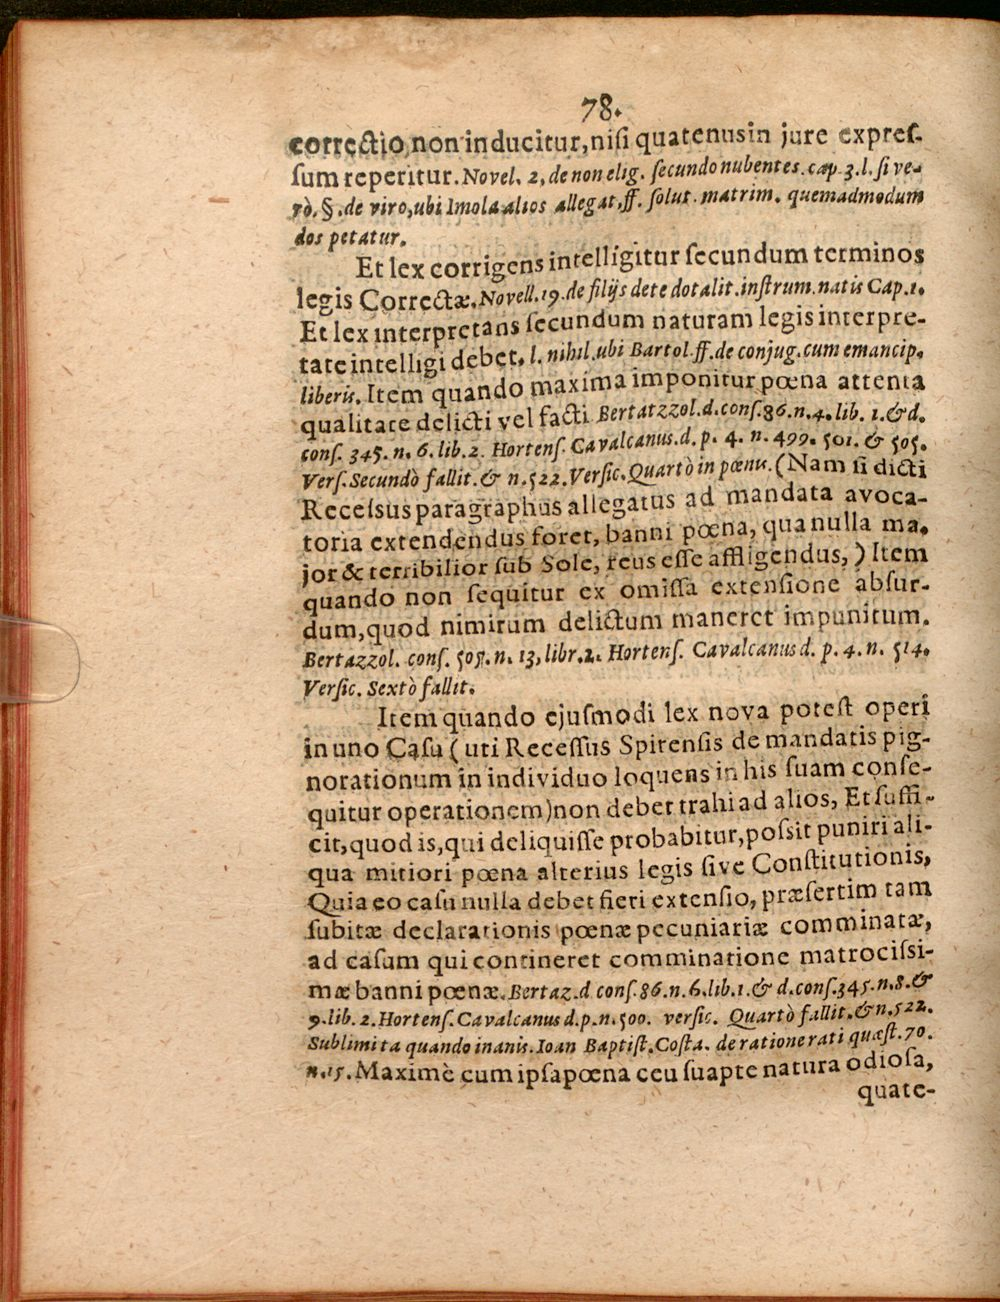 78.
correctio, non inducitur, nisi quatenus in jure expres-
sum reperitur. Novel. 2, de non elig. secundo nubentes. cap 3. l. si ve-
rò. §. de viro, ubi Imola alios allegat, ff. solut. matrim. quemadmodum
dos petatur.
Et lex corrigens intelligitur secundum terminos
legis Correctæ. Novell. 19. de filijs dete dotalit. instrum. natis Cap. 1.
Et lex interpretans secundum naturam legis interpre-
tate intelligi debet, l. nihil. ubi Bartol. ff. de conjug. cum emancip.
liberis. Item quando maxima imponitur pœna attenta
qualitate delicti vel facti Bertatzzol. d. cons. 86. n. 4. lib. 1. & d.
cons. 345. n. 6. lib. 2. Hortens. Cavalcanus. d. p. 4. n. 499. 501. & 505.
Vers. Secundò fallit. & n. 522. Versic. Quartò in pœnu. (Nam si dicti
Recessus paragraphus allegatus ad mandata avoca-
toria extendendus foret, banni pœna, qua nulla ma-
jor & terribilior sub Sole, reus esse affligendus,) Item
quando non sequitur ex omissa extensione absur-
dum, quod nimirum delictum maneret impunitum.
Bertazzol. cons. 505. n. 13, libr. 2. Hortens. Cavalcanus d. p. 4. n. 514.
Versic. Sextò fallit.
Item quando ejusmodi lex nova potest operi
in uno Casu (uti Recessus Spirensis de mandatis pig-
norationum in individuo loquens in his suam conse-
quitur operationem) non debet trahi ad alios, Et suffi-
cit, quod is, qui deliquisse probabitur, possit puniri ali-
qua mitiori pœna alterius legis sive Constitutionis,
Quia eo casu nulla debet fieri extensio, præsertim tam
subitæ declarationis pœnæ pecuniariæ comminatæ,
ad casum qui contineret comminatione matrocissi-
mæ banni pœnæ. Bertaz. d cons. 86. n. 6. lib. 1. & d. cons. 345. n. 8. &
9. lib. 2. Hortens. Cavalcanus d. p. n. 500. versic. Quartò fallit. & n. 522.
Sublimita quando inanis. Ioan Baptist. Costa. de ratione rati quæst. 70.
n. 15. Maximè cum ipsa pœna ceu suapte natura odiosa,
quate-